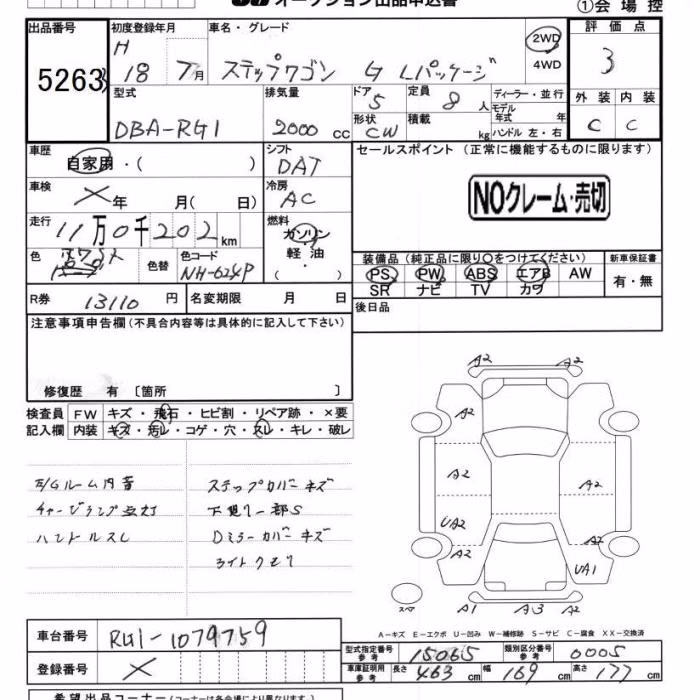 オークション出品申込書
①会場控
出品番号 初度登録年月 車名・グレード 評価点
5263
H 18 7月 ステップワゴン G Lパッケージ 2WD 4WD 3
型式 排気量 ドア 5 定員 8人 ディーラー・並行 外装 内装
モデル年式 年
DBA-RG1 2000cc 形状 CW 積載 kg ハンドル 左・右 C C
車歴 シフト セールスポイント(正常に機能するものに限ります)
自家用・( ) DAT
車検 冷房
×年 月( 日) AC NOクレーム・売切
走行 燃料
11万0千202km ガソリン・軽油・( )
色 色替 色コード 装備品(純正品に限り○をつけてください) 新車保証書
NH-624P PS PW ABS エアB AW 有・無
SR ナビ TV カワ
R券 13110円 名変期限 月 日 後日品
注意事項申告欄(不具合内容等は具体的に記入して下さい)
修復歴 有〔箇所 〕
検査員 FW キズ・飛石・ヒビ割・リペア跡・×要
記入欄 内装 キズ・汚レ・コゲ・穴・スレ・キレ・破レ
E/Gルーム内音 ステップカバーキズ
チャージランプ点灯 下廻り一部S
ハンドルスレ Dミラーカバーキズ
ライトクモリ
A2 A2
A2
A2 A2
UA2
A2 A2
UA1
スペア A1 A3 A2
A-キズ E-エクボ U-凹み W-補修跡 S-サビ C-腐食 XX-交換済
車台番号 RG1-1079759
型式指定番号 参考 15065 類別区分番号 参考 0005
登録番号 ×
車庫証明用 参考 長さ 463cm 幅 169cm 高さ 177cm
希望出品コーナー(コーナーは各会場により異なります)